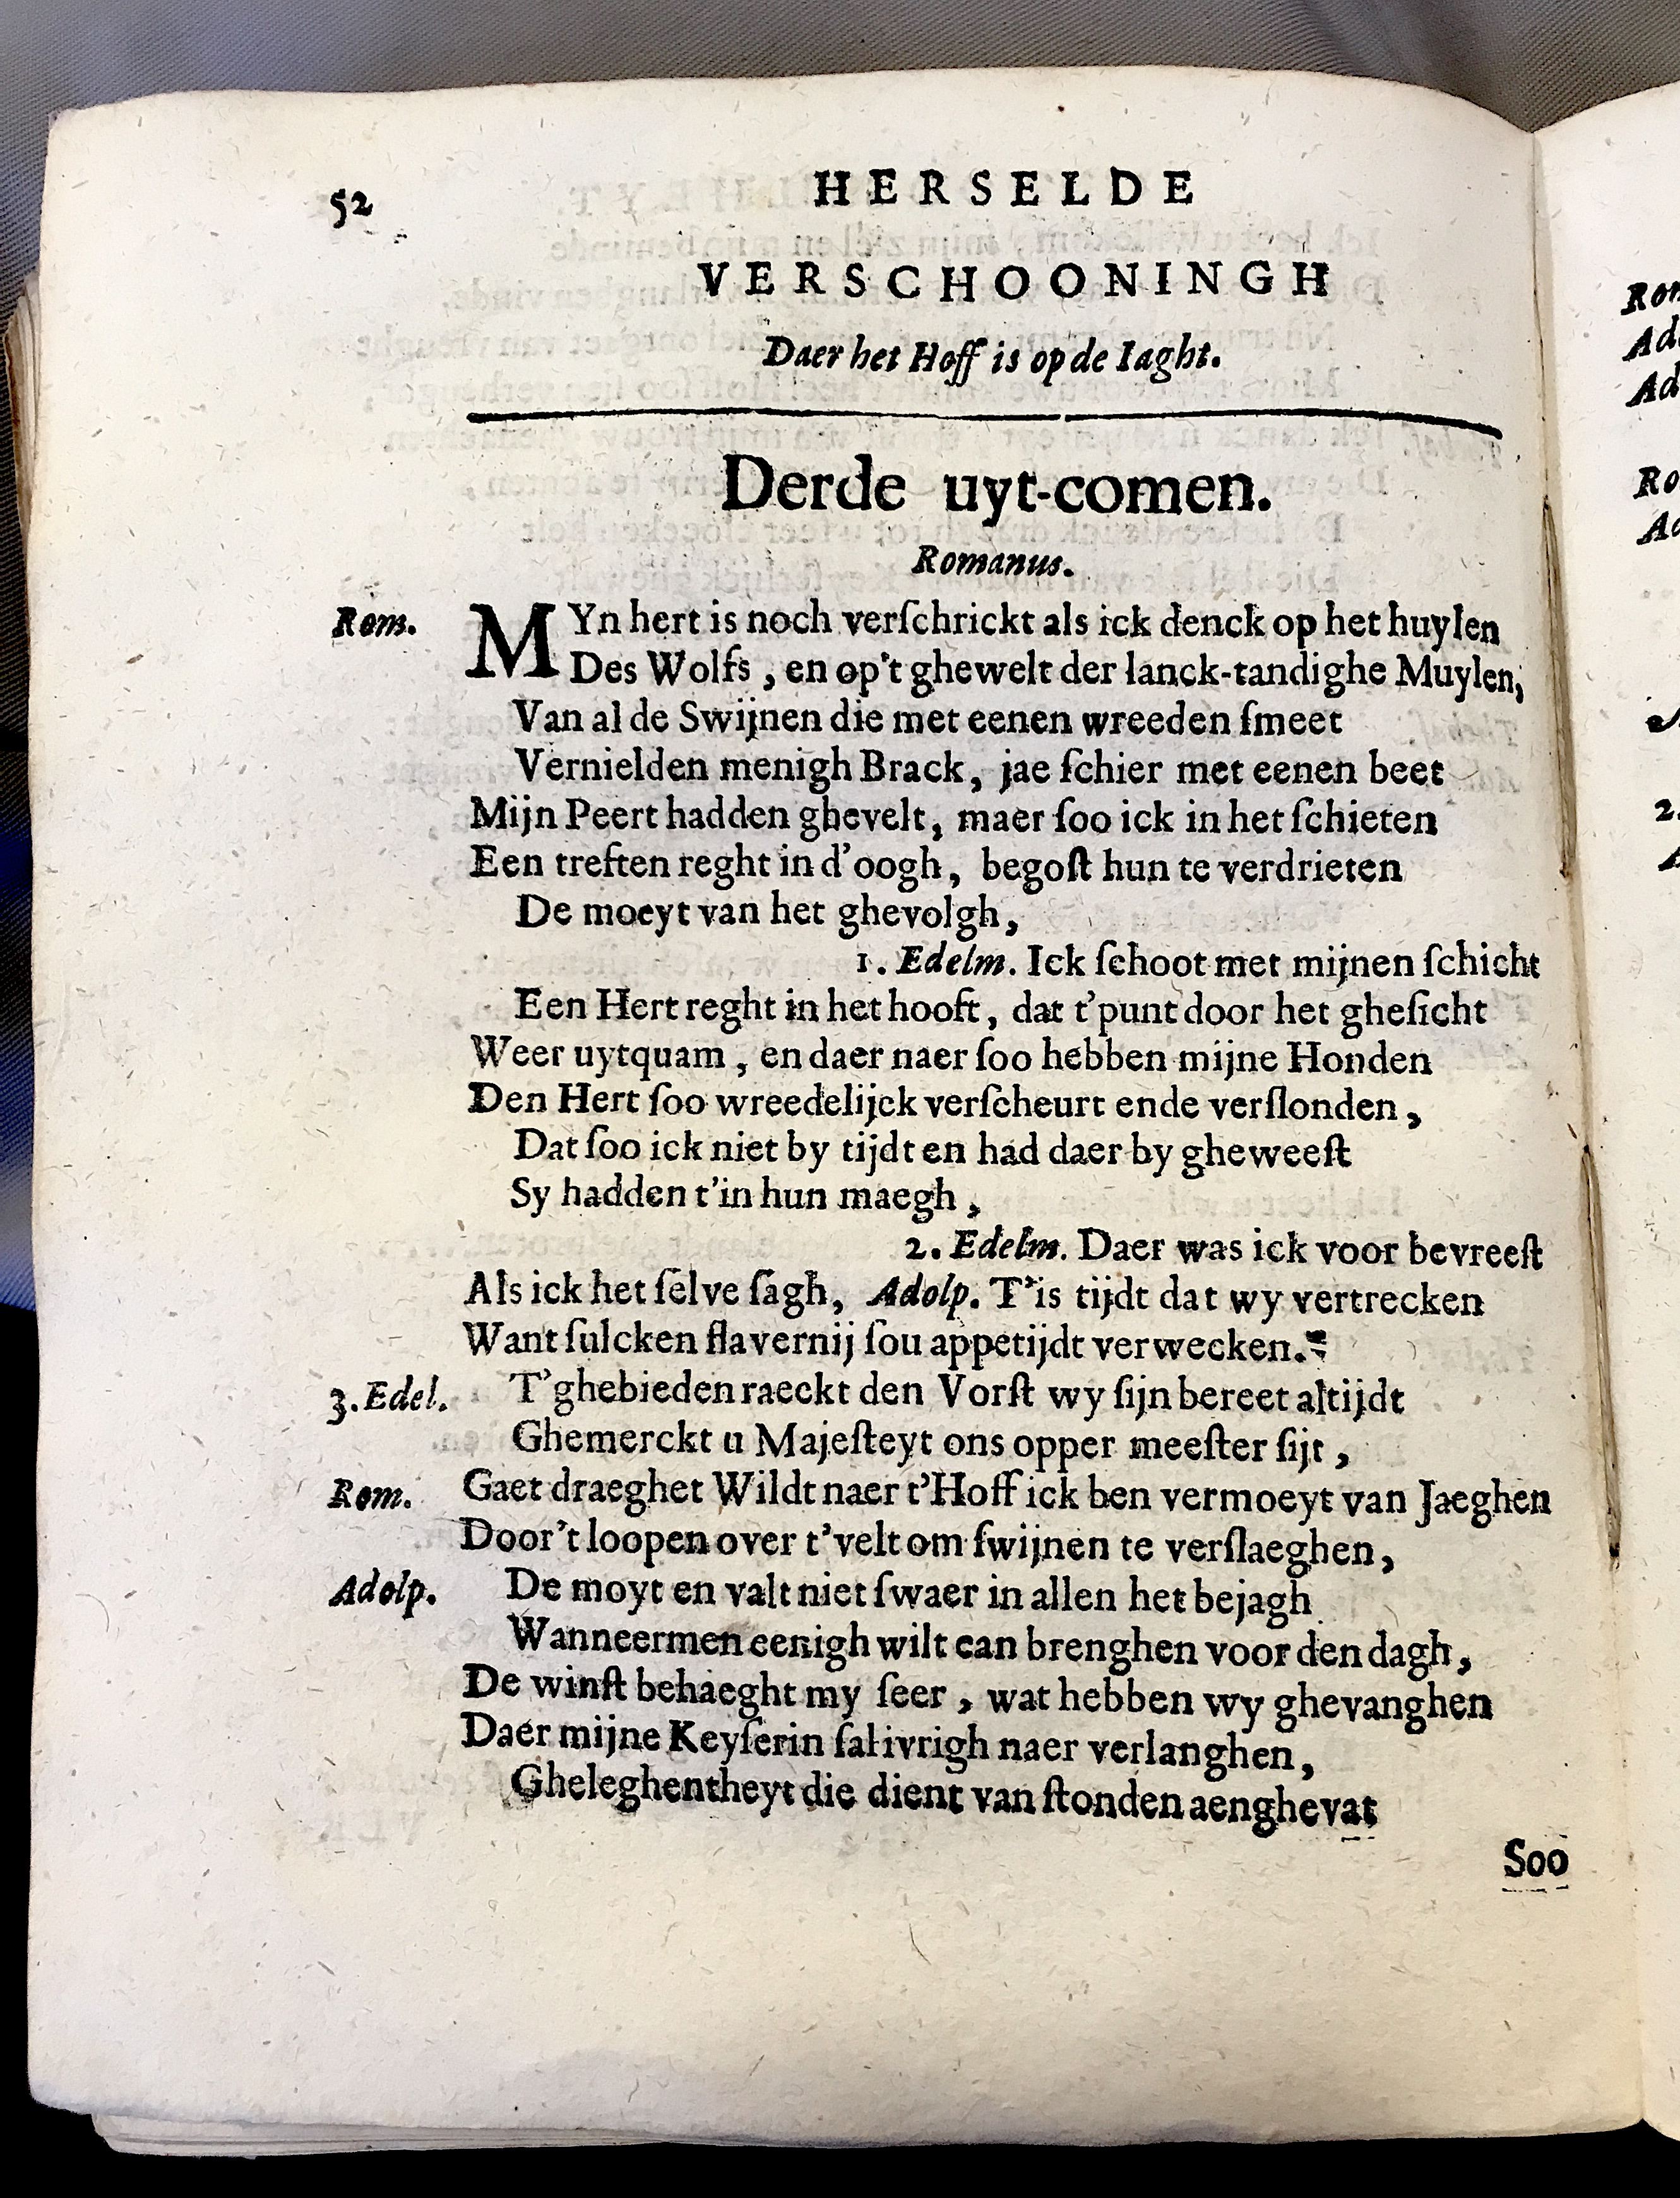 52
HERSELDE
VERSCHOONINGH
Daer het Hoff is op de Iaght.
Derde uyt-comen.
Romanus.
Rom. MYn hert is noch verſchrickt als ick denck op het huylen
Des Wolfs, en op't ghewelt der lanck-tandighe Muylen,
Van al de Swijnen die met eenen wreeden ſmeet
Vernielden menigh Brack, jae ſchier met eenen beet
Mijn Peert hadden ghevelt, maer ſoo ick in het ſchieten
Een treften reght in d'oogh, begoſt hun te verdrieten
De moeyt van het ghevolgh,
1. Edelm. Ick ſchoot met mijnen ſchicht
Een Hert reght in het hooft, dat t'punt door het gheſicht
Weer uytquam, en daer naer ſoo hebben mijne Honden
Den Hert ſoo wreedelijck verſcheurt ende verſlonden,
Dat ſoo ick niet by tijdt en had daer by gheweeſt
Sy hadden t'in hun maegh,
2. Edelm. Daer was ick voor bevreeſt
Als ick het ſelve ſagh, Adolp. T'is tijdt dat wy vertrecken
Want ſulcken ſlavernij ſou appetijdt verwecken.
3. Edel. T'ghebieden raeckt den Vorſt wy ſijn bereet altijdt
Ghemerckt u Majeſteyt ons opper meeſter ſijt,
Rom. Gaet draeghet Wildt naer t'Hoff ick ben vermoeyt van Jaeghen
Door't loopen over t'velt om ſwijnen te verſlaeghen,
Adolp. De moyt en valt niet ſwaer in allen het bejagh
Wanneermen eenigh wilt can brenghen voor den dagh,
De winſt behaeght my ſeer, wat hebben wy ghevanghen
Daer mijne Keyſerin ſal ivrigh naer verlanghen,
Gheleghentheyt die dient van ſtonden aenghevat
Soo
Rom
Ad
Ad
Ro
Ad
2.